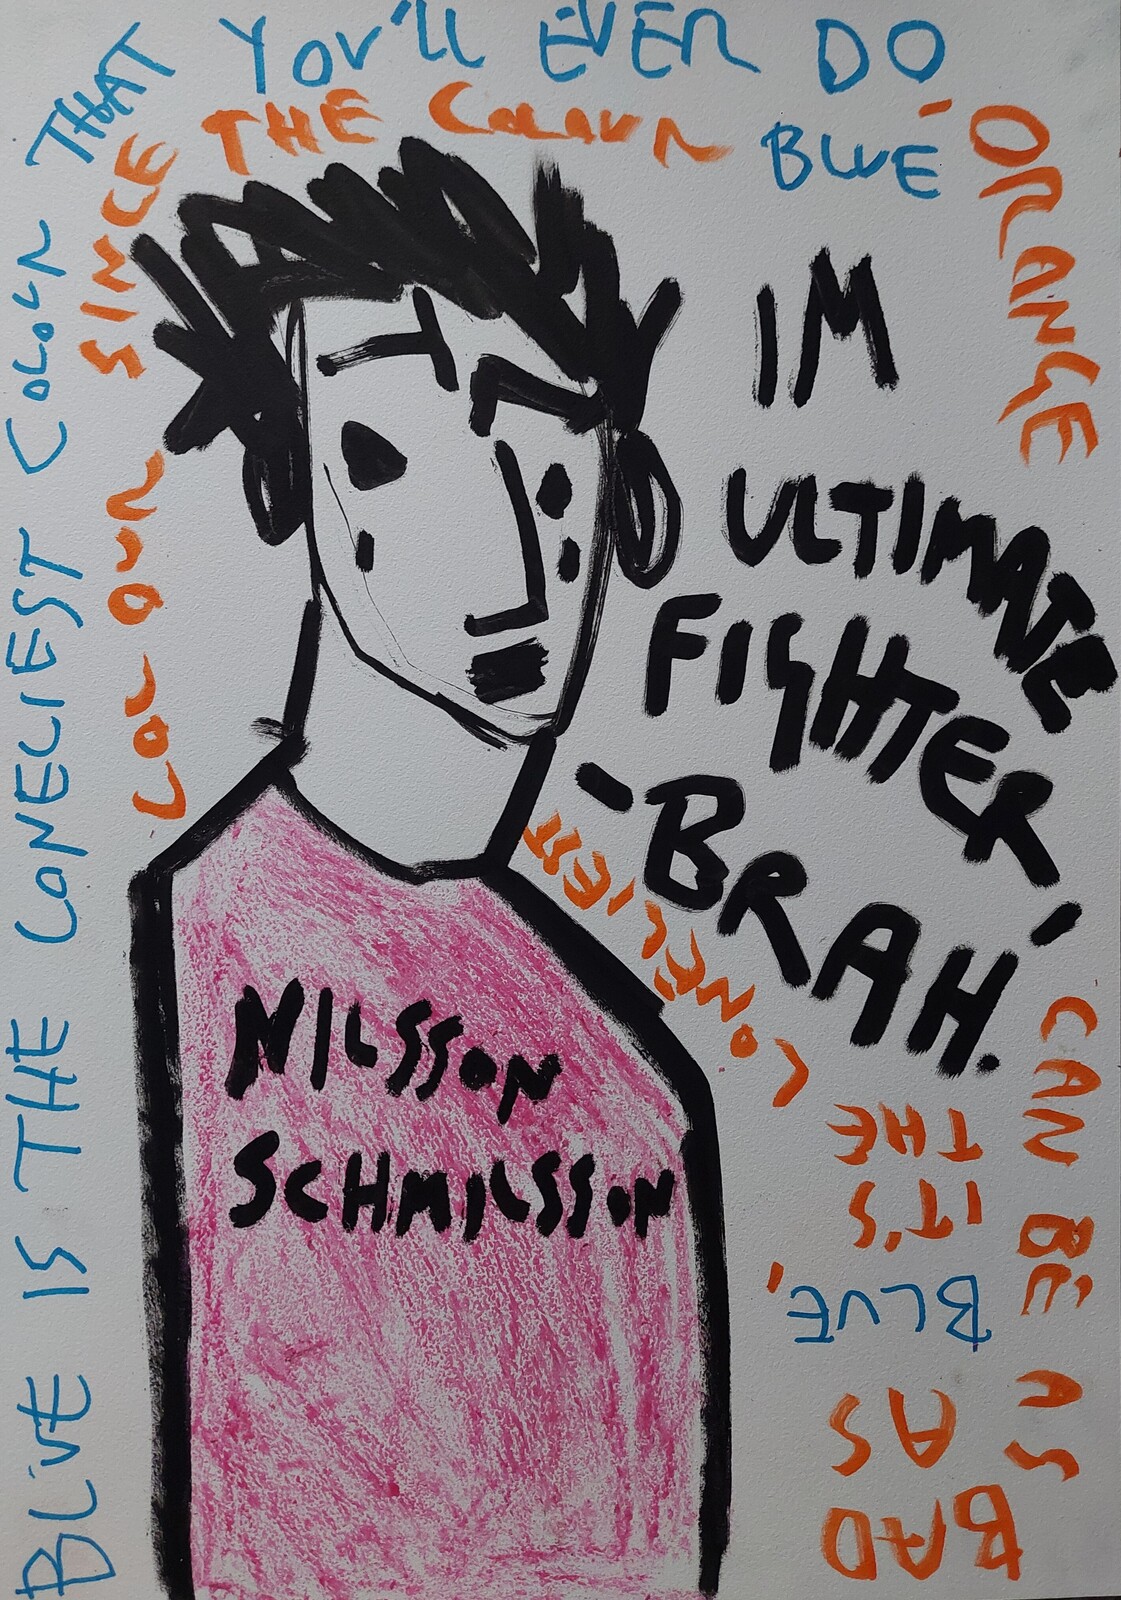 BLUE IS THE LONELIEST COLOUR THAT
YOU'LL EVER DO
ORANGE
CAN BE AS
BAD
AS
BLUE,
IT'S
THE
LONELIEST
COLOUR
SINCE THE COLOUR BLUE
IM
ULTIMATE
FIGHTER
'BRAH.'
NILSSON
SCHMILSSON